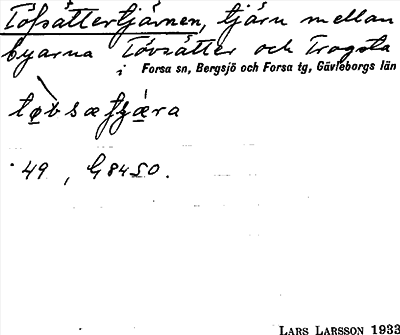 Töfsättertjärnen, tjärn mellan
byarna Tövsätter och Trogsta
i Forsa sn, Bergsjö och Forsa tg, Gävleborgs län
49, G8450.
LARS LARSSON 1933